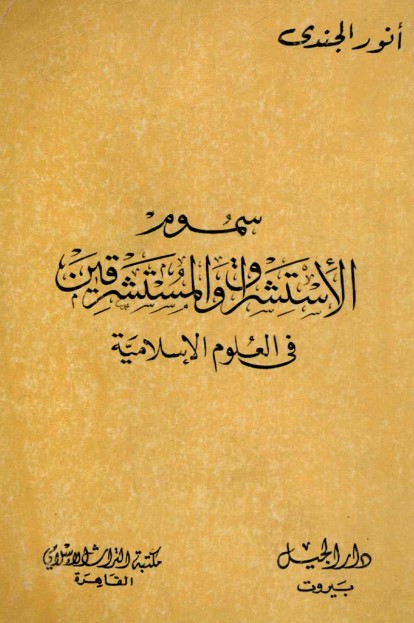 أنور الجندى
سموم
الاستشراق والمستشرقين
فى العلوم الإسلامية
دار الجيل
بيروت
مكتبة التراث الإسلامي
القاهرة